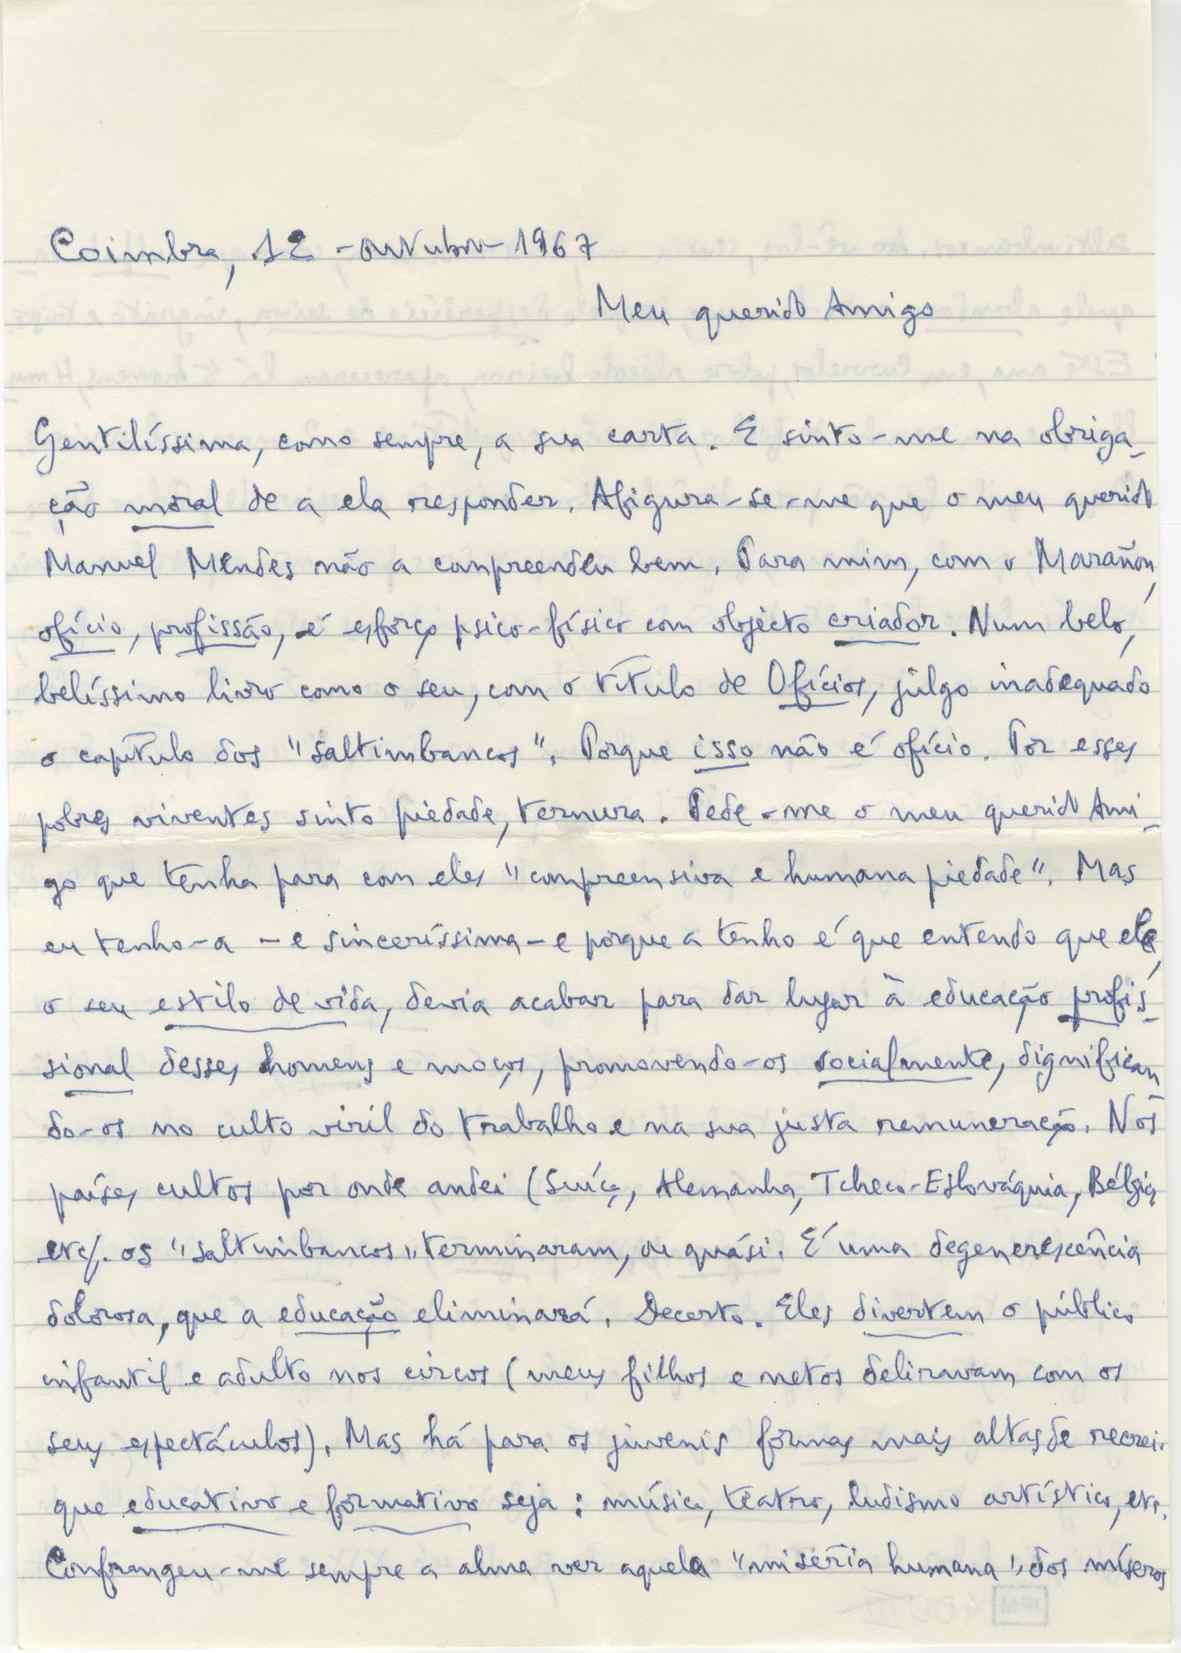 Coimbra, 12 - outubro - 1967
Meu querido Amigo
Gentilíssima, como sempre, a sua carta. E sinto-me na obriga-
ção moral de a ela responder. Afigura-se-me que o meu querido
Manuel Mendes não a compreendeu bem. Para mim, com o Marañon,
ofício, profissão, é esforço psico-físico com objecto criador. Num belo,
belíssimo livro como o seu, com o título de Ofícios, julgo inadequado
o capítulo dos "saltimbancos". Porque isso não é ofício. Por esses
pobres viventes sinto piedade, ternura. Pede-me o meu querido Ami-
go que tenha para com eles "compreensiva e humana piedade". Mas
eu tenho-a - e sinceríssima - e porque a tenho é que entendo que ele,
o seu estilo de vida, devia acabar para dar lugar à educação profis-
sional desses homens e moços, promovendo-os socialmente, dignifican
do-os no culto viril do trabalho e na sua justa remuneração. Nos
países cultos por onde andei (Suíça, Alemanha, Tcheco-Eslováquia, Bélgica,
etc). os "saltimbancos" terminaram, ou quási. É uma degenerescência
dolorosa, que a educação eliminará. Decerto. Eles divertem o público
infantil e adulto nos circos (meus filhos e netos deliravam com os
seus espectáculos). Mas há para os juvenis formas mais altas de recreio
que educativo e formativo seja: música, teatro, ludismo artístico, etc.
Confrangeu-me sempre a alma ver aquela "miséria humana", dos míseros